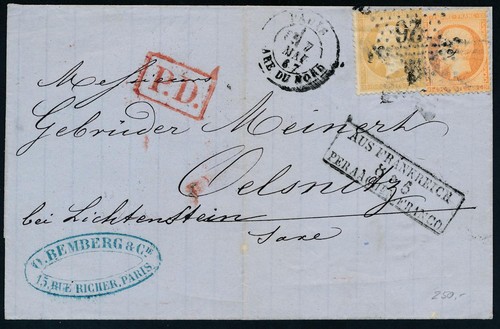 PARIS
7
MAI
67
GARE DU NORD
26
P.D.
Messieurs
Gebrüder Meinert
Oelsnitz
bei Lichtenstein
Saxe
AUS FRANKREICH
PER AACHEN FRANCO
O. BEMBERG & Cie
15, RUE RICHER, PARIS
250.-